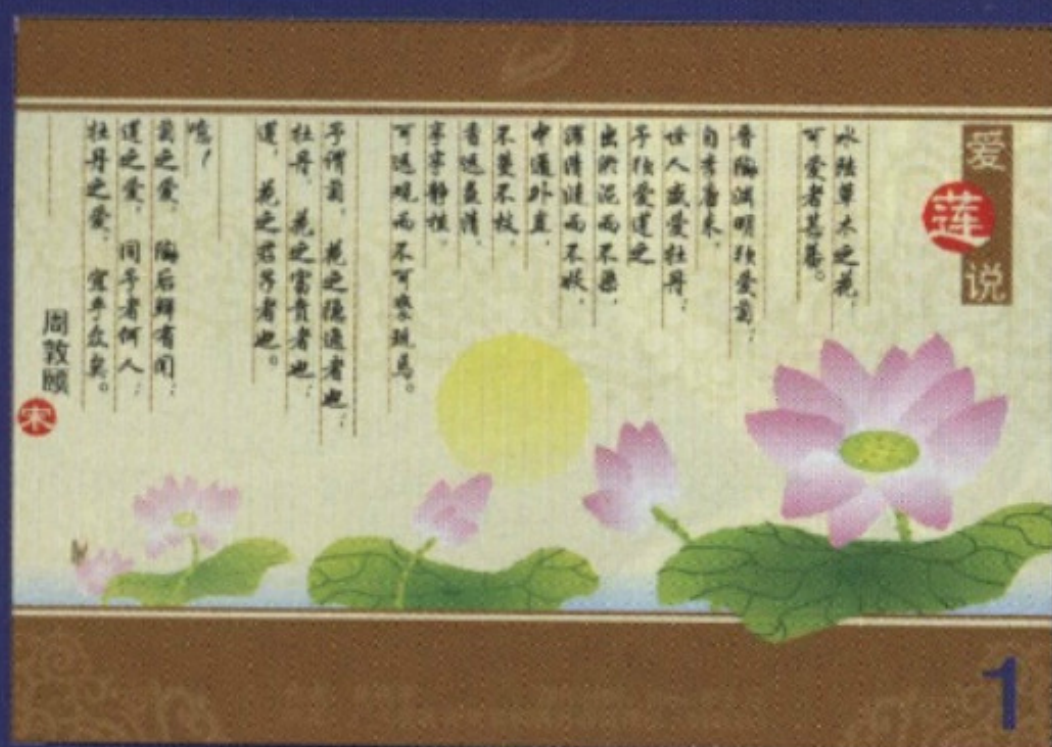 爱莲说
水陆草木之花,
可爱者甚蕃。
晋陶渊明独爱菊;
自李唐来,
世人盛爱牡丹;
予独爱莲之
出淤泥而不染,
濯清涟而不妖,
中通外直,
不蔓不枝,
香远益清,
亭亭静植,
可远观而不可亵玩焉。
予谓菊,花之隐逸者也;
牡丹,花之富贵者也;
莲,花之君子者也。
噫!
菊之爱,陶后鲜有闻;
莲之爱,同予者何人;
牡丹之爱,宜乎众矣。
周敦颐
宋
1